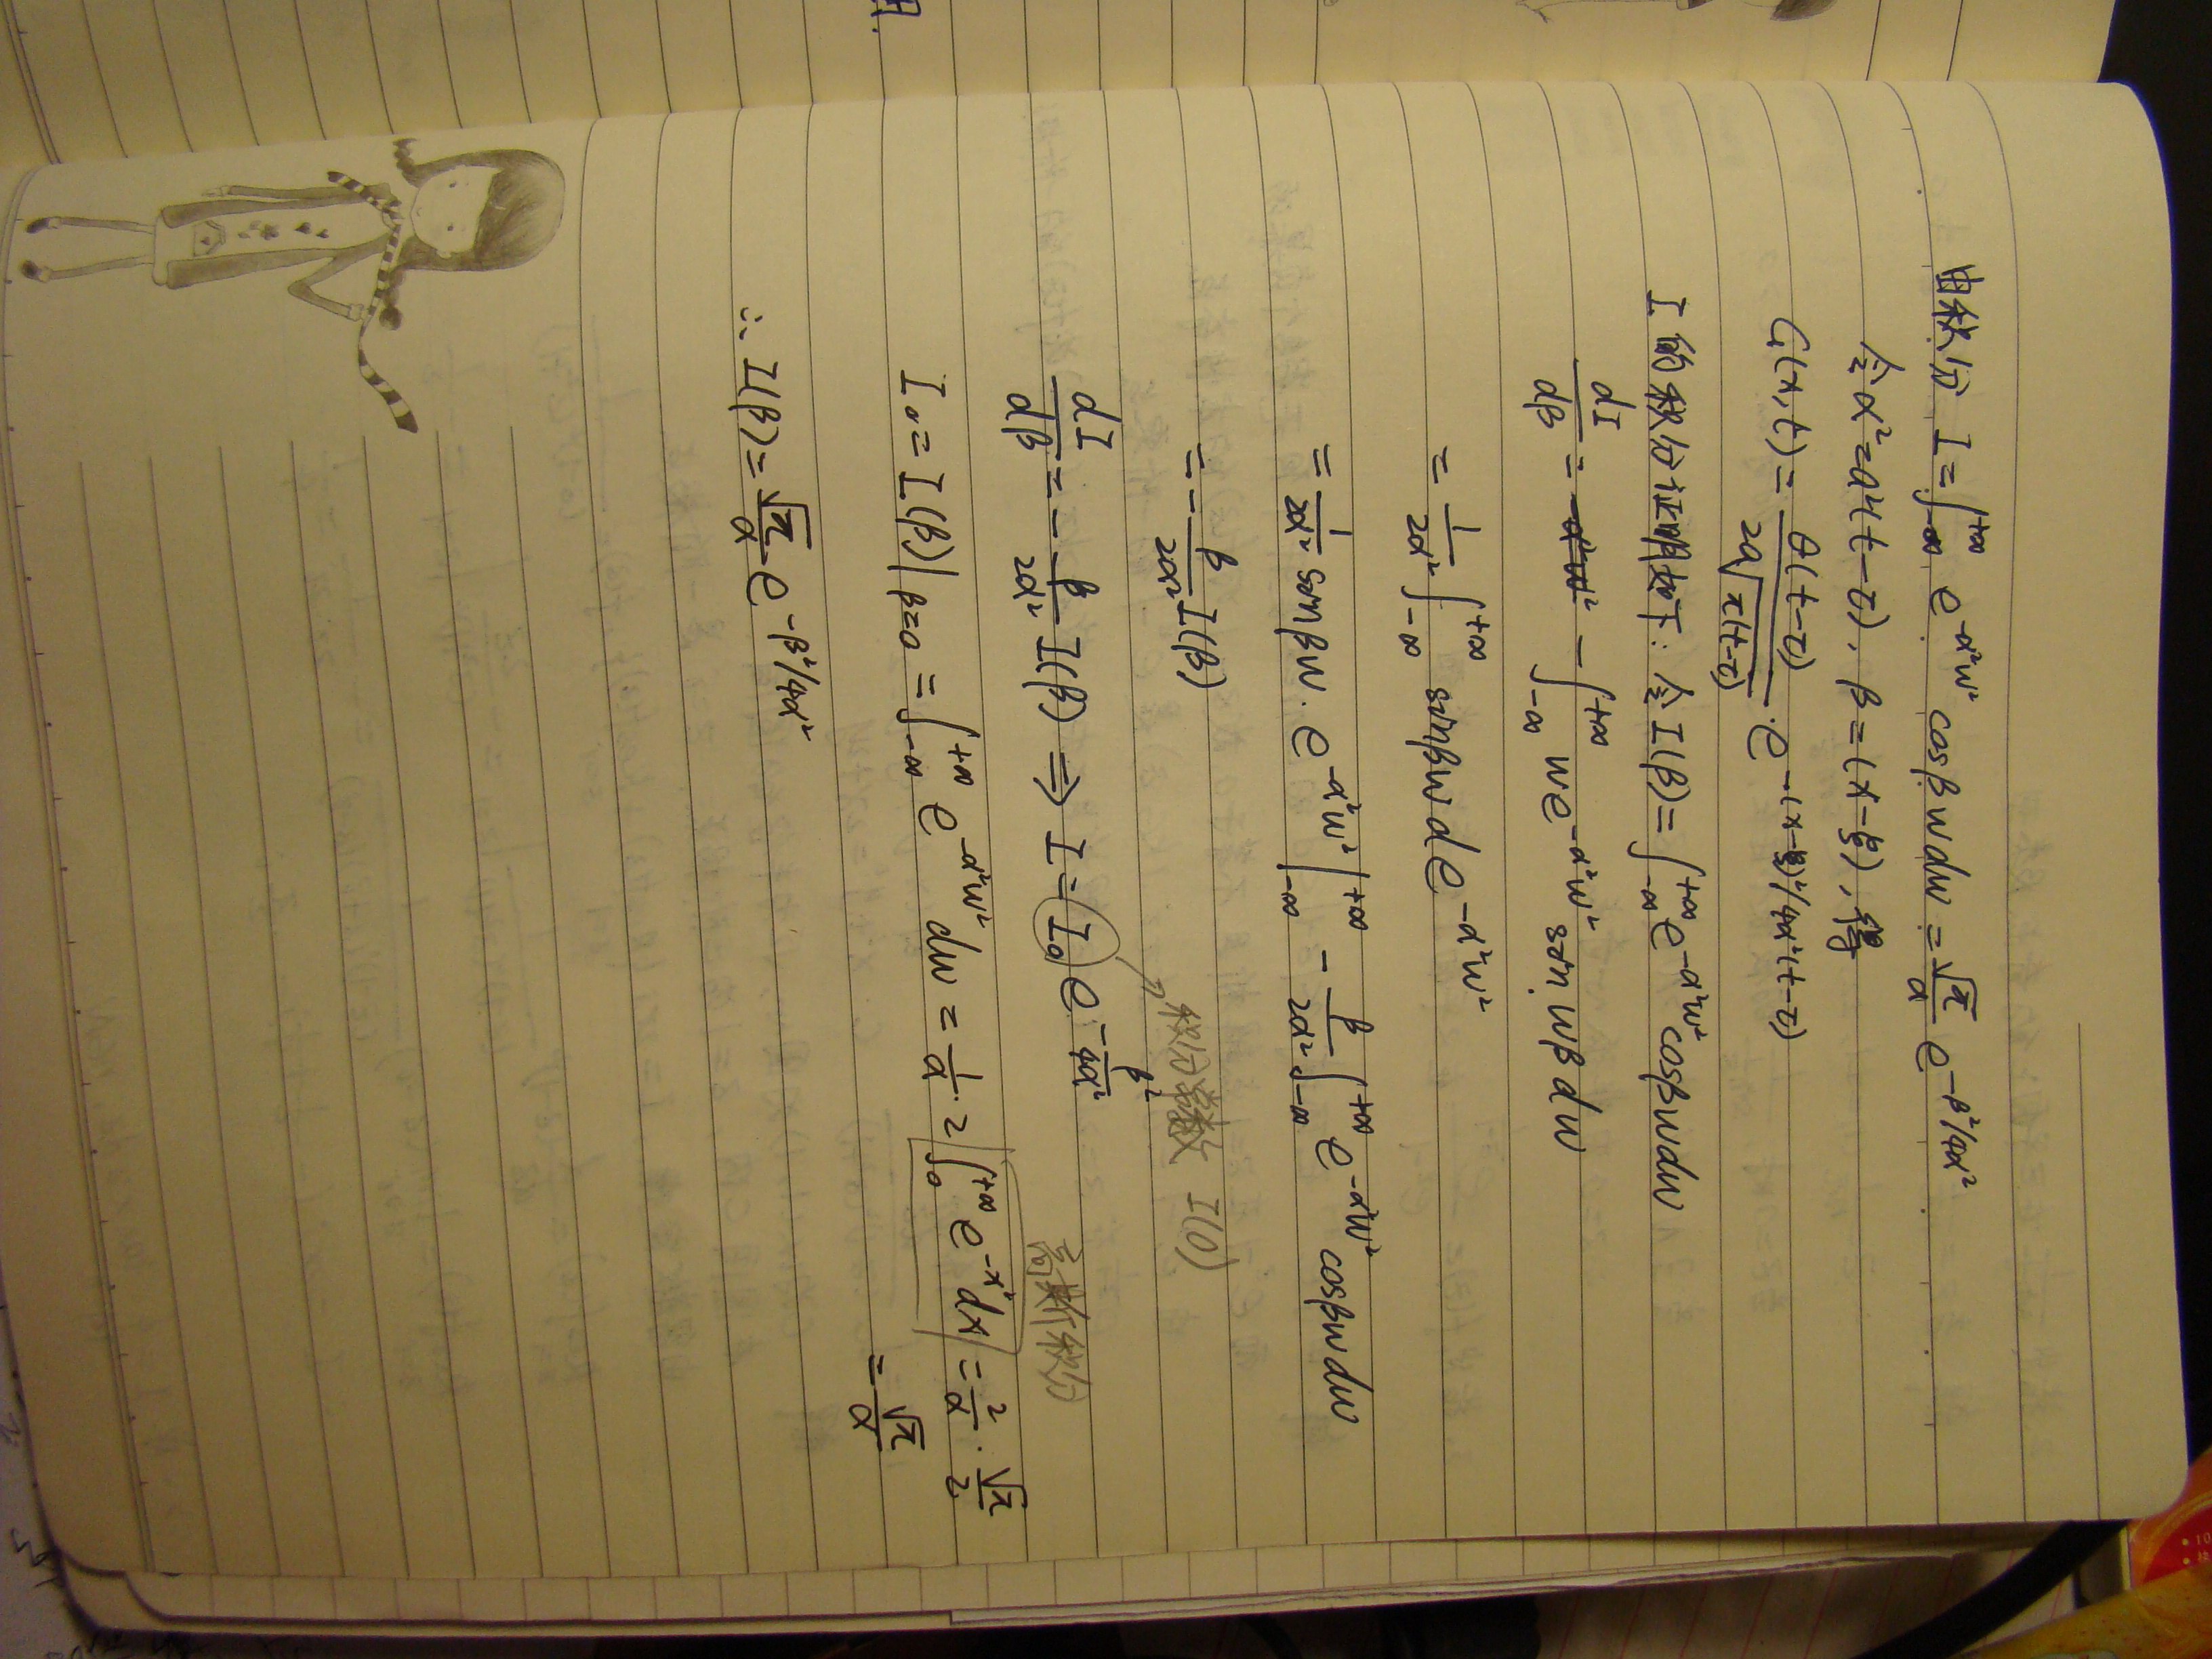 由积分 I = ∫_{-∞}^{+∞} e^{-α²w²} cosβw dw = \frac{√π}{α} e^{-β²/4α²}
令 α² = a²(t-τ), β = (x-ξ), 得
G(x,t) = \frac{θ(t-τ)}{2a√{π(t-τ)}} · e^{-(x-ξ)²/4α²(t-τ)}
I 的积分证明如下: 令 I(β) = ∫_{-∞}^{+∞} e^{-α²w²} cosβw dw
\frac{dI}{dβ} = -∫_{-∞}^{+∞} w e^{-α²w²} sin wβ dw
= \frac{1}{2α²} ∫_{-∞}^{+∞} sinβw d e^{-α²w²}
= \frac{1}{2α²} sinβw · e^{-α²w²} |_{-∞}^{+∞} - \frac{β}{2α²} ∫_{-∞}^{+∞} e^{-α²w²} cosβw dw
= -\frac{β}{2α²} I(β)
积分常数 I(0)
\frac{dI}{dβ} = -\frac{β}{2α²} I(β) ⇒ I = I₀ e^{-\frac{β²}{4α²}}
高斯积分
I₀ = I(β)|_{β=0} = ∫_{-∞}^{+∞} e^{-α²w²} dw = \frac{1}{α} · 2 ∫_0^{+∞} e^{-x²} dx = \frac{2}{α} · \frac{√π}{2}
= \frac{√π}{α}
∴ I(β) = \frac{√π}{α} e^{-β²/4α²}